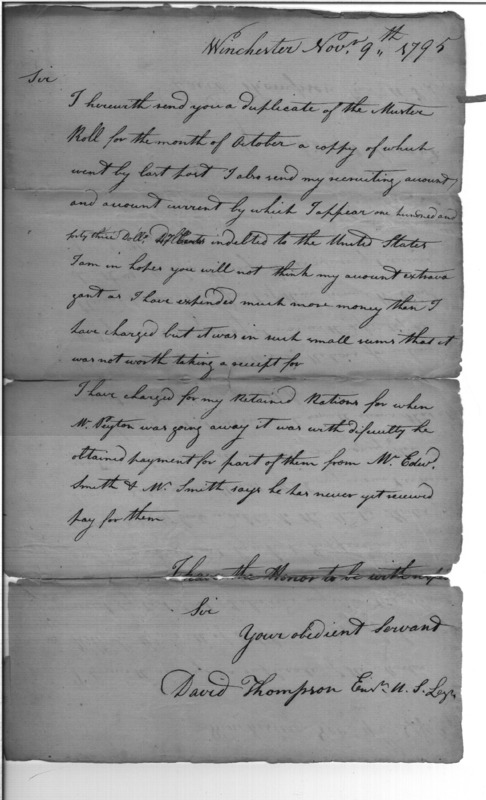 Winchester Novr. 9th 1795
Sir
I herewith send you a duplicate of the Muster
Roll for the month of October a coppy of which
went by last post I also send my recruiting acount,
and account current by which I appear one hundred and
three Dolls. indebted to the United States
I am in hopes you will not think my acount extrava
gant as I have expended much more money than I
have charged but it was in such small sums that it
was not worth taking a receipt for
I have charged for my Retained Rations for when
Mr. Peyton was going away it was with dificulty he
obtained payment for part of them from Mr. Edwd.
Smith & Mr. Smith says he has never yet received
pay for them
I have the Honor to be with
Sir
Your obedient Servant
David Thompson Ensn. U. S. Legn